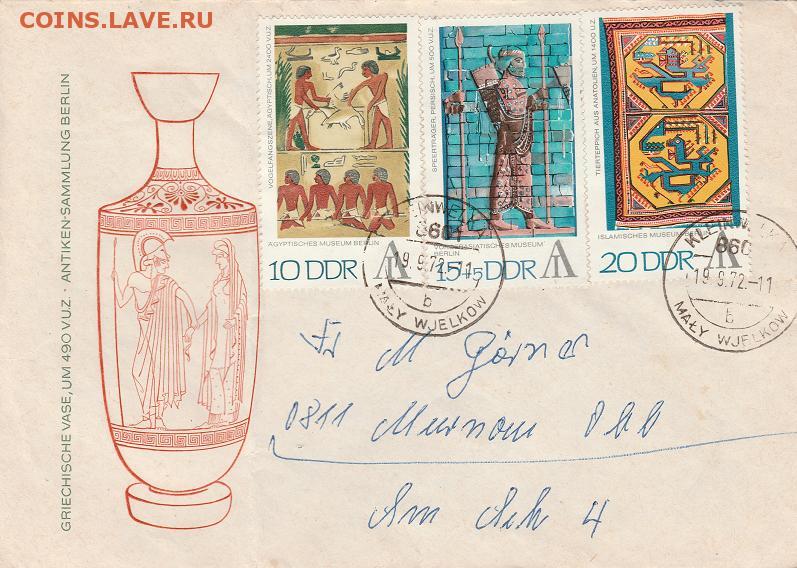 COINS.LAVE.RU
GRIECHISCHE VASE, UM 490 V.U.Z. · ANTIKEN-SAMMLUNG BERLIN
VOGELFANGSZENE, ÄGYPTISCH, UM 2400 V.U.Z.
ÄGYPTISCHES MUSEUM BERLIN
10 DDR
SPEERTRÄGER, PERSISCH, UM 500 V.U.Z.
VORDERASIATISCHES MUSEUM
BERLIN
15+5 DDR
TIERTEPPICH AUS ANATOLIEN, UM 1400 U.Z.
ISLAMISCHES MUSEUM
20 DDR
8601
19.9.72.-11
b
MAŁY WJELKOW
860
19.9.72.-11
b
MAŁY WJELKOW
Fr M Görner
0811 Murnau Obb
Am Ach 4